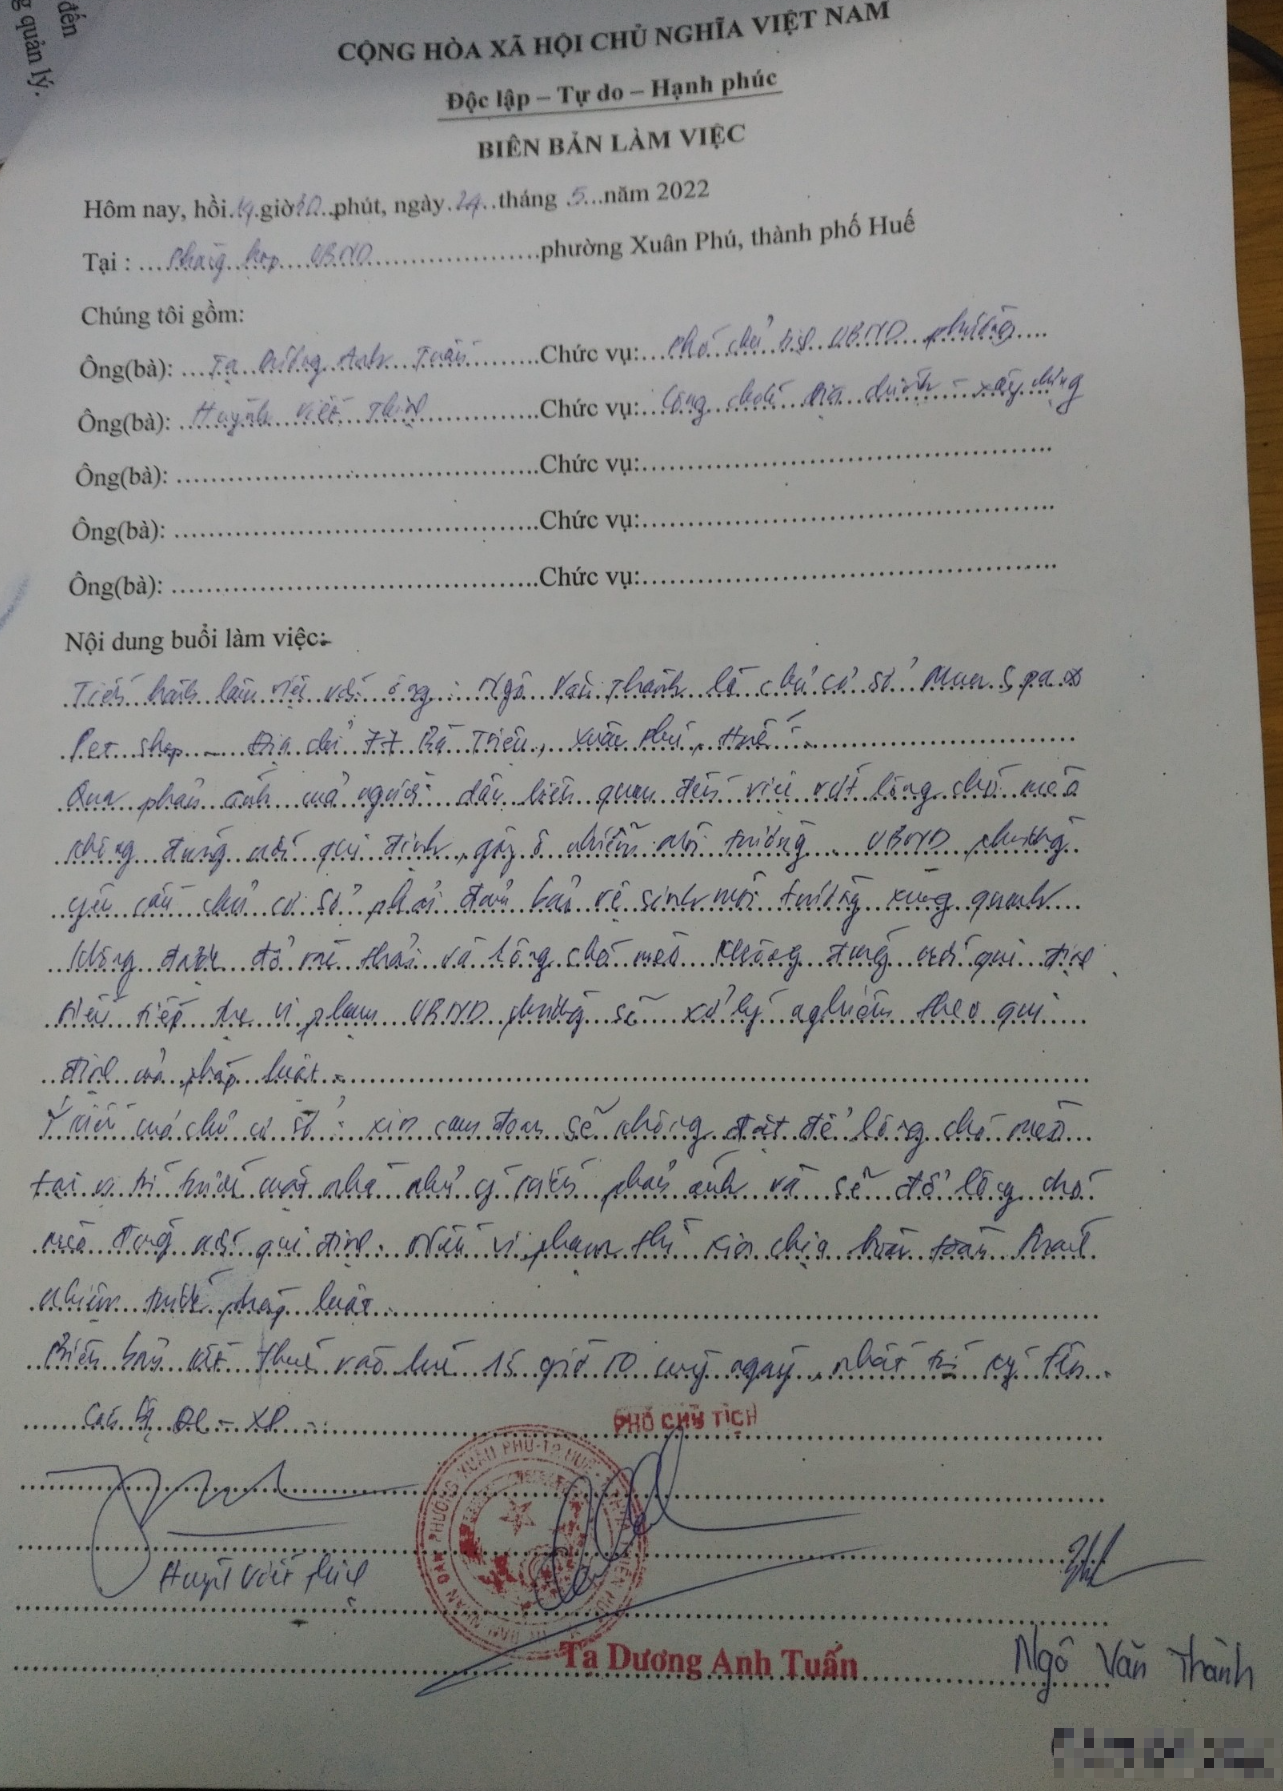 đến
g quản lý.
CỘNG HÒA XÃ HỘI CHỦ NGHĨA VIỆT NAM
Độc lập – Tự do – Hạnh phúc
BIÊN BẢN LÀM VIỆC
Hôm nay, hồi 14 giờ 30 phút, ngày 24 tháng 5 năm 2022
Tại : Phòng họp UBND phường Xuân Phú, thành phố Huế
Chúng tôi gồm:
Ông(bà): Tạ Dương Anh Tuấn Chức vụ: Phó chủ tịch UBND phường
Ông(bà): Huỳnh Viết Thịnh Chức vụ: Công chức địa chính - xây dựng
Ông(bà): Chức vụ:
Ông(bà): Chức vụ:
Ông(bà): Chức vụ:
Nội dung buổi làm việc:
Tiến hành làm việc với ông : Ngô Văn Thành là chủ cơ sở Mun Spa &
Pet shop - Địa chỉ 77 Bà Triệu, Xuân Phú, Huế.
Qua phản ánh của người dân liên quan đến việc vứt lông chó mèo
không đúng nơi qui định, gây ô nhiễm môi trường. UBND phường
yêu cầu chủ cơ sở phải đảm bảo vệ sinh môi trường xung quanh
không được đổ rác thải và lông chó mèo không đúng nơi qui định
nếu tiếp tục vi phạm UBND phường sẽ xử lý nghiêm theo qui
định của pháp luật.
Ý kiến của chủ cơ sở : xin cam đoan sẽ không đặt để lông chó mèo
tại vị trí trước mặt nhà như ý kiến phản ánh và sẽ đổ lông chó
mèo đúng nơi qui định. Nếu vi phạm thì xin chịu hoàn toàn trách
nhiệm trước pháp luật.
Biên bản kết thúc vào lúc 15 giờ 10 cùng ngày, nhất trí ký tên.
Cán bộ ĐC - XD
PHÓ CHỦ TỊCH
Huỳnh Viết Thịnh
Tạ Dương Anh Tuấn
Ngô Văn Thành